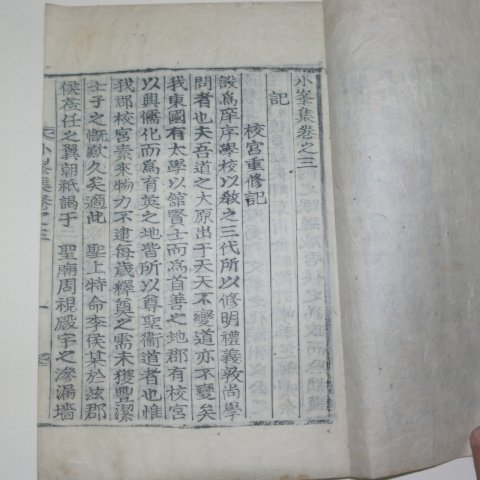 小峯集卷之三
記
校宮重修記
設爲庠序學校以敎之三代所以修明禮義敦尚學
問者也夫吾道之大原出于天天不變道亦不變矣
我東國有太學以館賢士而爲首善之地郡有校宮
以興儒化而爲育英之地皆所以尊聖衛道者也惟
我郡校宮素來物力不逮每歲釋奠之需未獲豐潔
士子之慨歎久矣適此 聖上特命李侯某於玆郡
侯莅任之翼朝祗謁于 聖廟周視殿宇之滲漏墻
小峯集卷之三
一